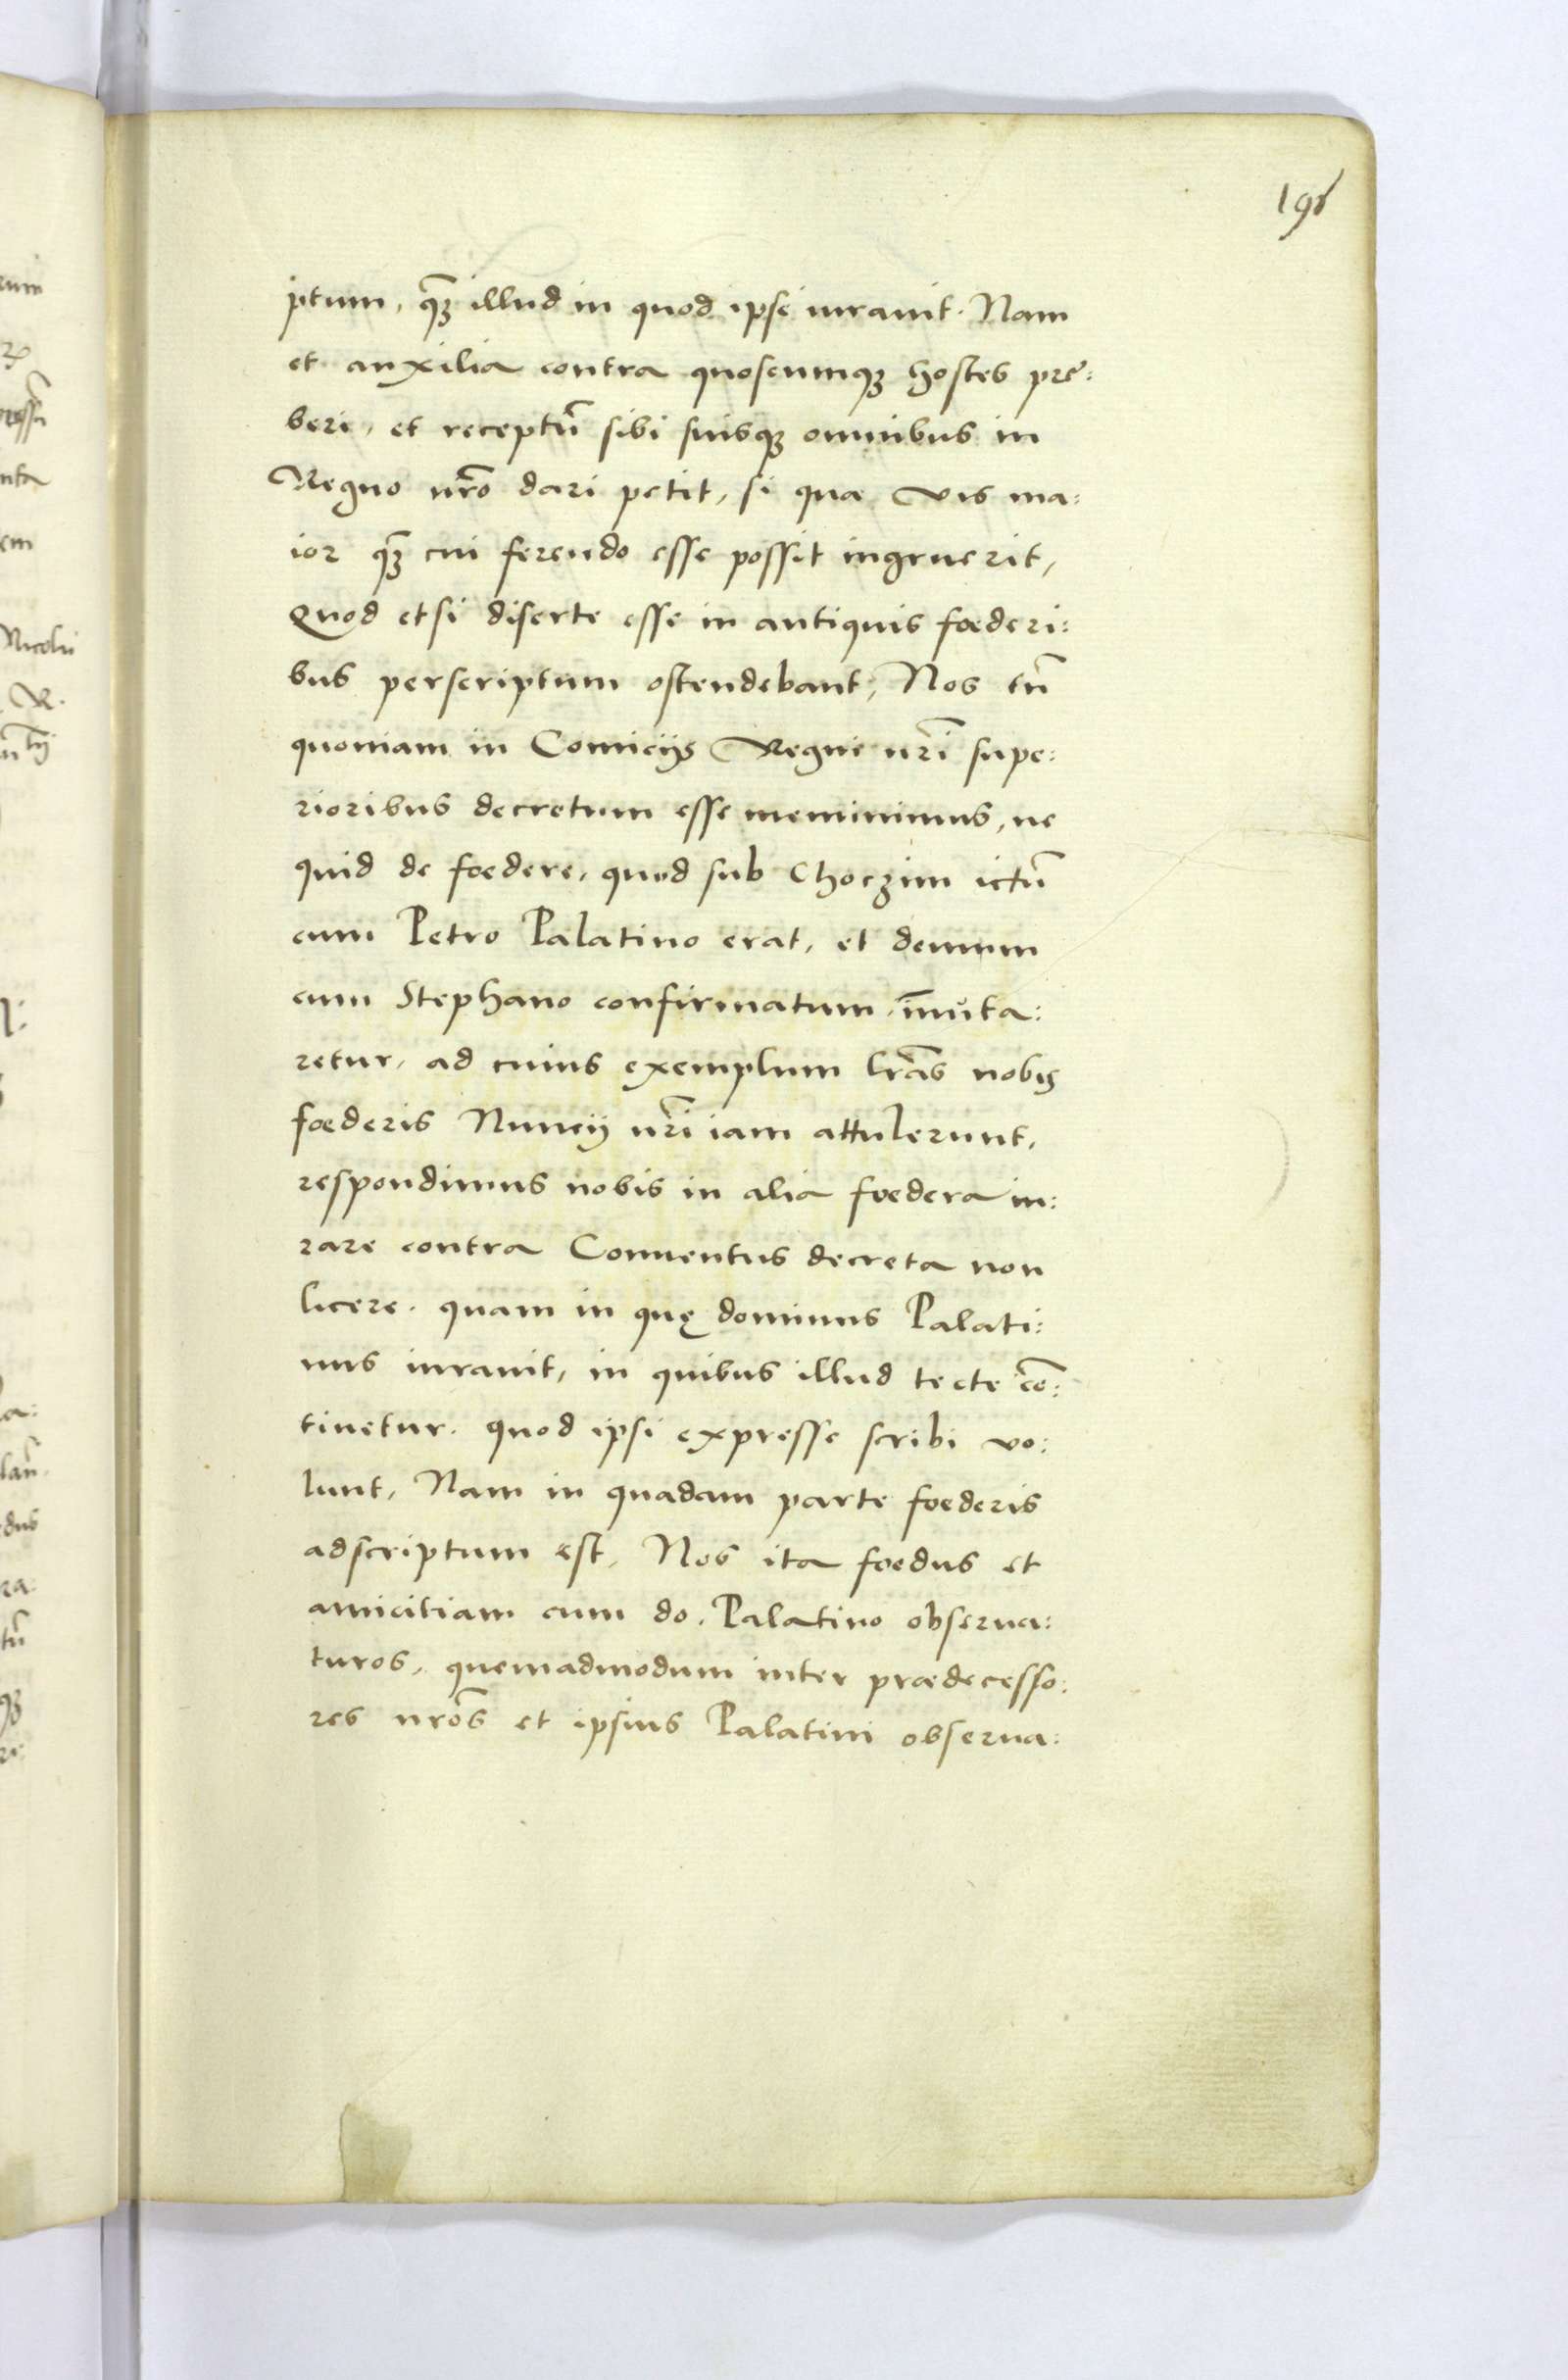 198
iptum, qȝ illud in quod ipse iurauit. Nam
et auxilia contra quoscumqȝ hostes pre:
beri, et receptū sibi suisqȝ omnibus in
Regno nr̄o dari petit, si qua vis ma:
ior qȝ cui ferendo esse possit ingruerit,
Quod etsi diserte esse in antiquis foederi:
bus perscriptum ostendebant, Nos tn̄
quoniam in Comicijs Regni nr̄i supe:
rioribus decretum esse meminimus, ne
quid de foedere, quod sub Choczim ictū
cum Petro Palatino erat, et demum
cum Stephano confirmatum, im̄uta:
retur, ad cuius exemplum lr̄as nobis
foederis Nuncij nr̄i iam attulerunt,
respondimus nobis in alia foedera iu:
rare contra Conuentus decreta non
licere, quam in quę dominus Palati:
nus iurauit, in quibus illud tecte cō:
tinetur, quod ipsi expresse scribi vo:
lunt, Nam in quadam parte foederis
adscriptum est, Nos ita foedus et
amicitiam cum do. Palatino obserua:
turos, quemadmodum inter praedecesso:
res nr̄os et ipsius Palatini obserua: